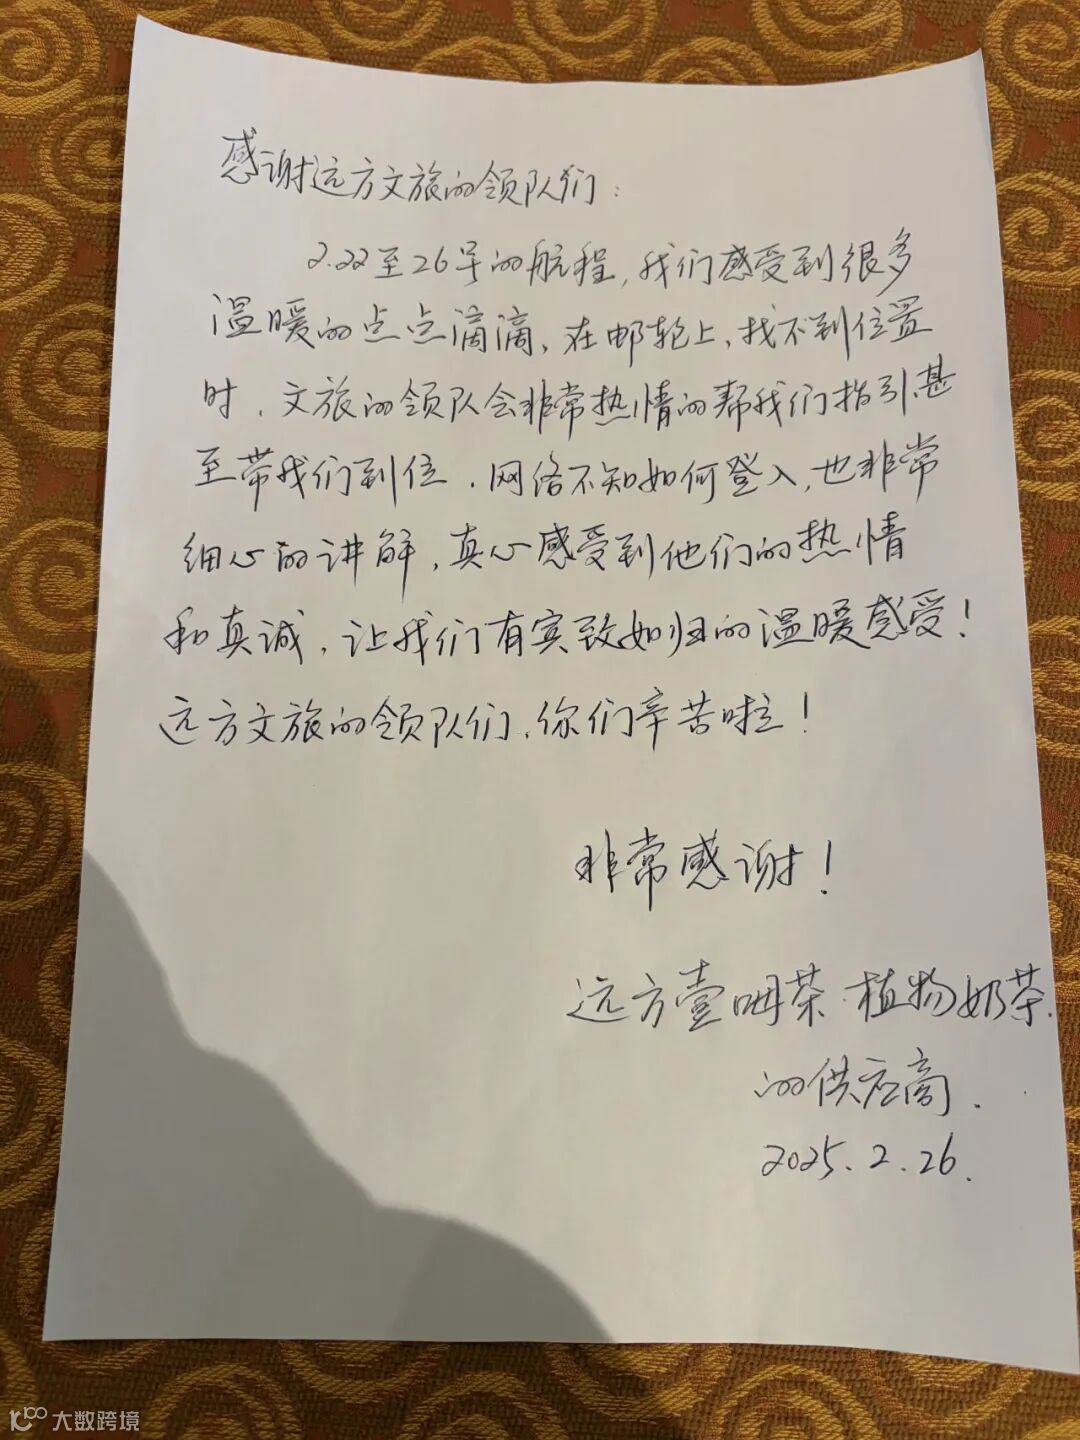 感谢远方文旅的领队们：
2.22至26号的航程，我们感受到很多
温暖的点点滴滴，在邮轮上，找不到位置
时，文旅的领队会非常热情的帮我们指引甚
至带我们到位，网络不知如何登入，也非常
细心的讲解，真心感受到他们的热情
和真诚，让我们有宾致如归的温暖感受！
远方文旅的领队们，你们辛苦啦！
非常感谢！
远方壹咩茶·植物奶茶
的供应商.
2025.2.26.
大数跨境